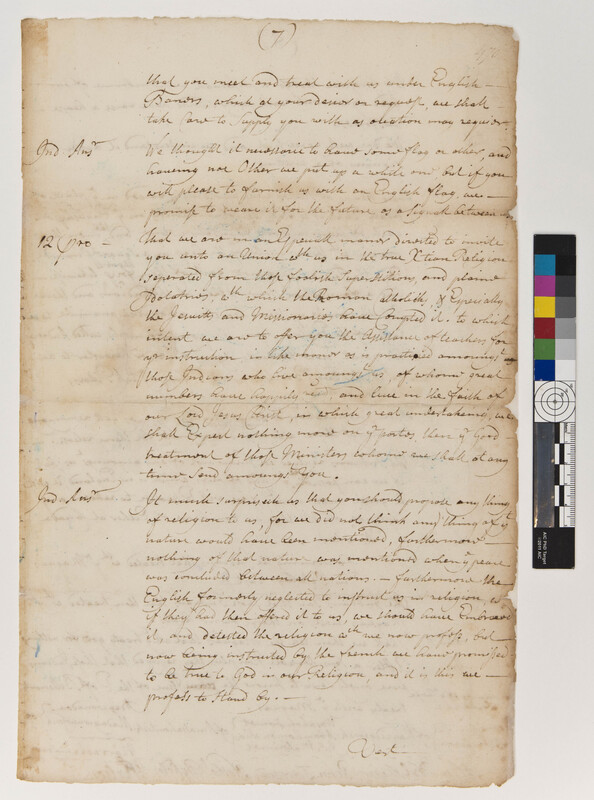 (7)
that you meet and treat with us under English
Baners, which at your desire or request, we shall
take Care to Supply you with as ocation may require.
Ind Ansr We thought it nessesarie to have some flag or other, and
haveing not Other we put up a white one but if you
will please to furnish us with an English flag, we
promise to weare it for the future as a Signal between us
12 Pro - that we are in an Especiall maner Directed to invite
you into an Union wth us in the true Xtian Religion
Seperated from those foolish Superstitions, and plaine
Idolatries, wth which the Roman Catholicks, & Especially
the Jesuits and Missionaries have Corupted it. to which
intent we are to offer you the Assistance of teachers for
yr instruction in like maner as is practised amoungst
those Indians who live amoungst us, of whome great
numbers have happily and live in the faith of
our Lord Jesus Christ, in which great undertakeing, we
shall Expect nothing more on yr partes then ye Good
treatment of those Ministers whome we shall at any
time Send amoungst you.
Ind Ansr It much surpriseth us that you should propose any thing
of religion to us, for we did not think any thing of yt
nature would have been mentioned, furthermore
nothing of that nature was mentioned when ye peace
was concluded between all nations. - furthermore the
English formerly neglected to instruct us in religion, wch
if they had then offerd it to us, we should have Embraced
it, and detested the religion wch we now profess, but
now being instructed by the french we have promised
to be true to God in our Religion, and it is this we
profess to stand by. -